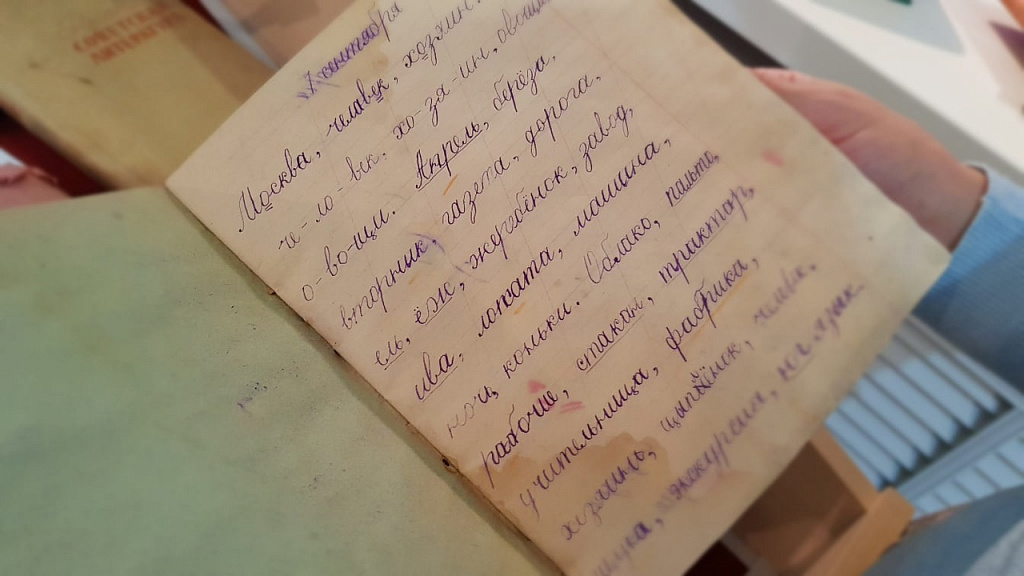 СОВЕТСКАЯ
ЛИТЕРАТУРА
сентября
Москва, человек, хозяин.
че-ло-век, хо-зя-ин, овощи
о-во-щи. Апрель, берёза,
вторник, газета, дорога.
ель, ёж, жеребёнок, завод,
ива, лопата, машина,
ночь, коньки. Облако, пальто,
рабочие, стакан, трактор,
учительница, фабрика,
хозяин, цыплёнок, человек.
щука, экскурсия, маляк.